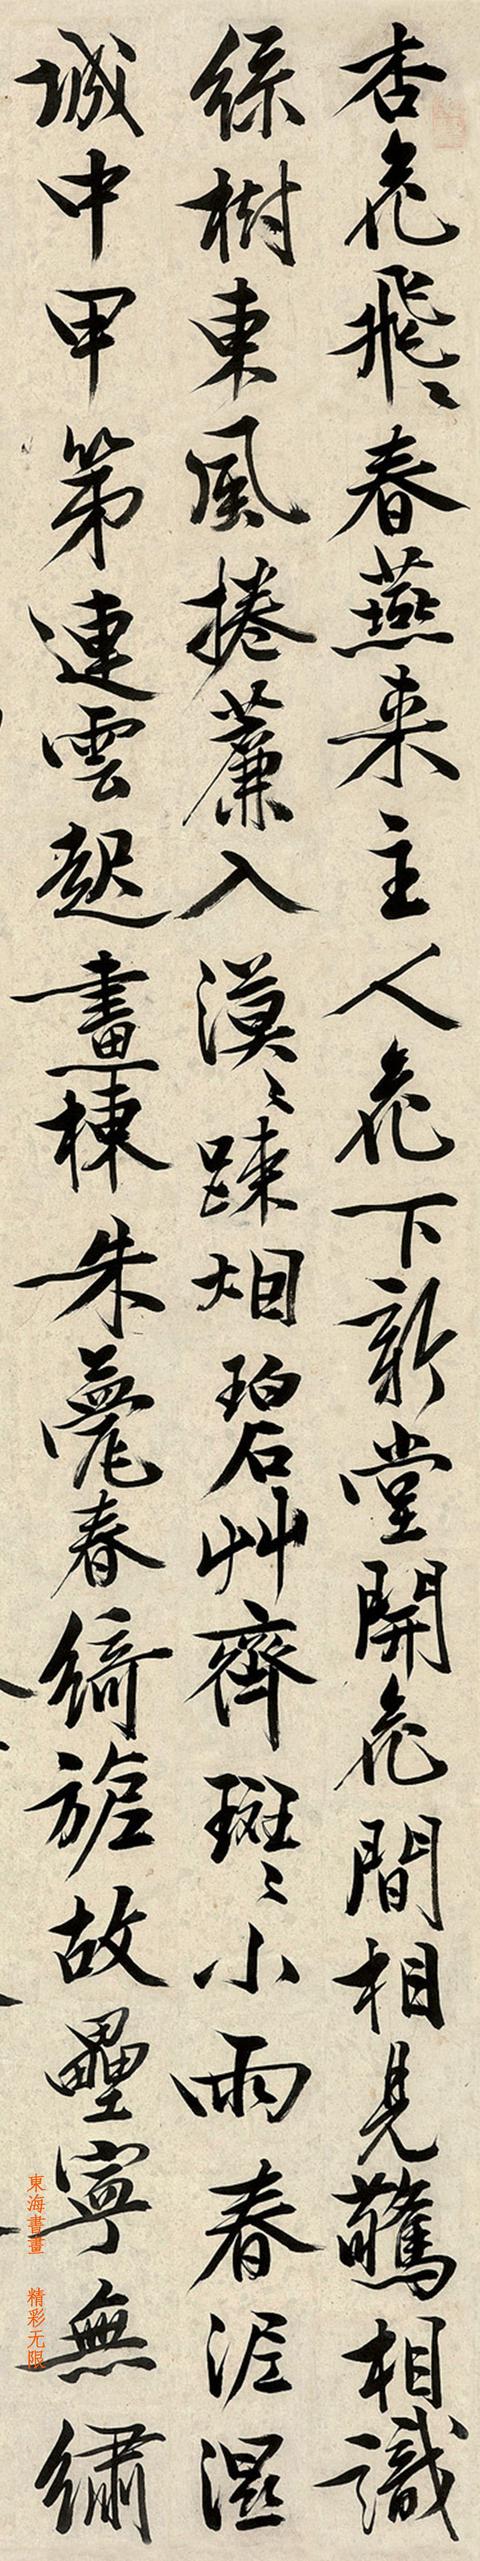 杏花飛〻春燕来主人花下新堂開花間相見驚相識
綠樹東風捲簾入漠〻踈烟碧艸齊斑〻小雨春泥濕
城中甲第連雲起畫棟朱甍春綺旎故壘寧無繡
東海書畫 精彩无限